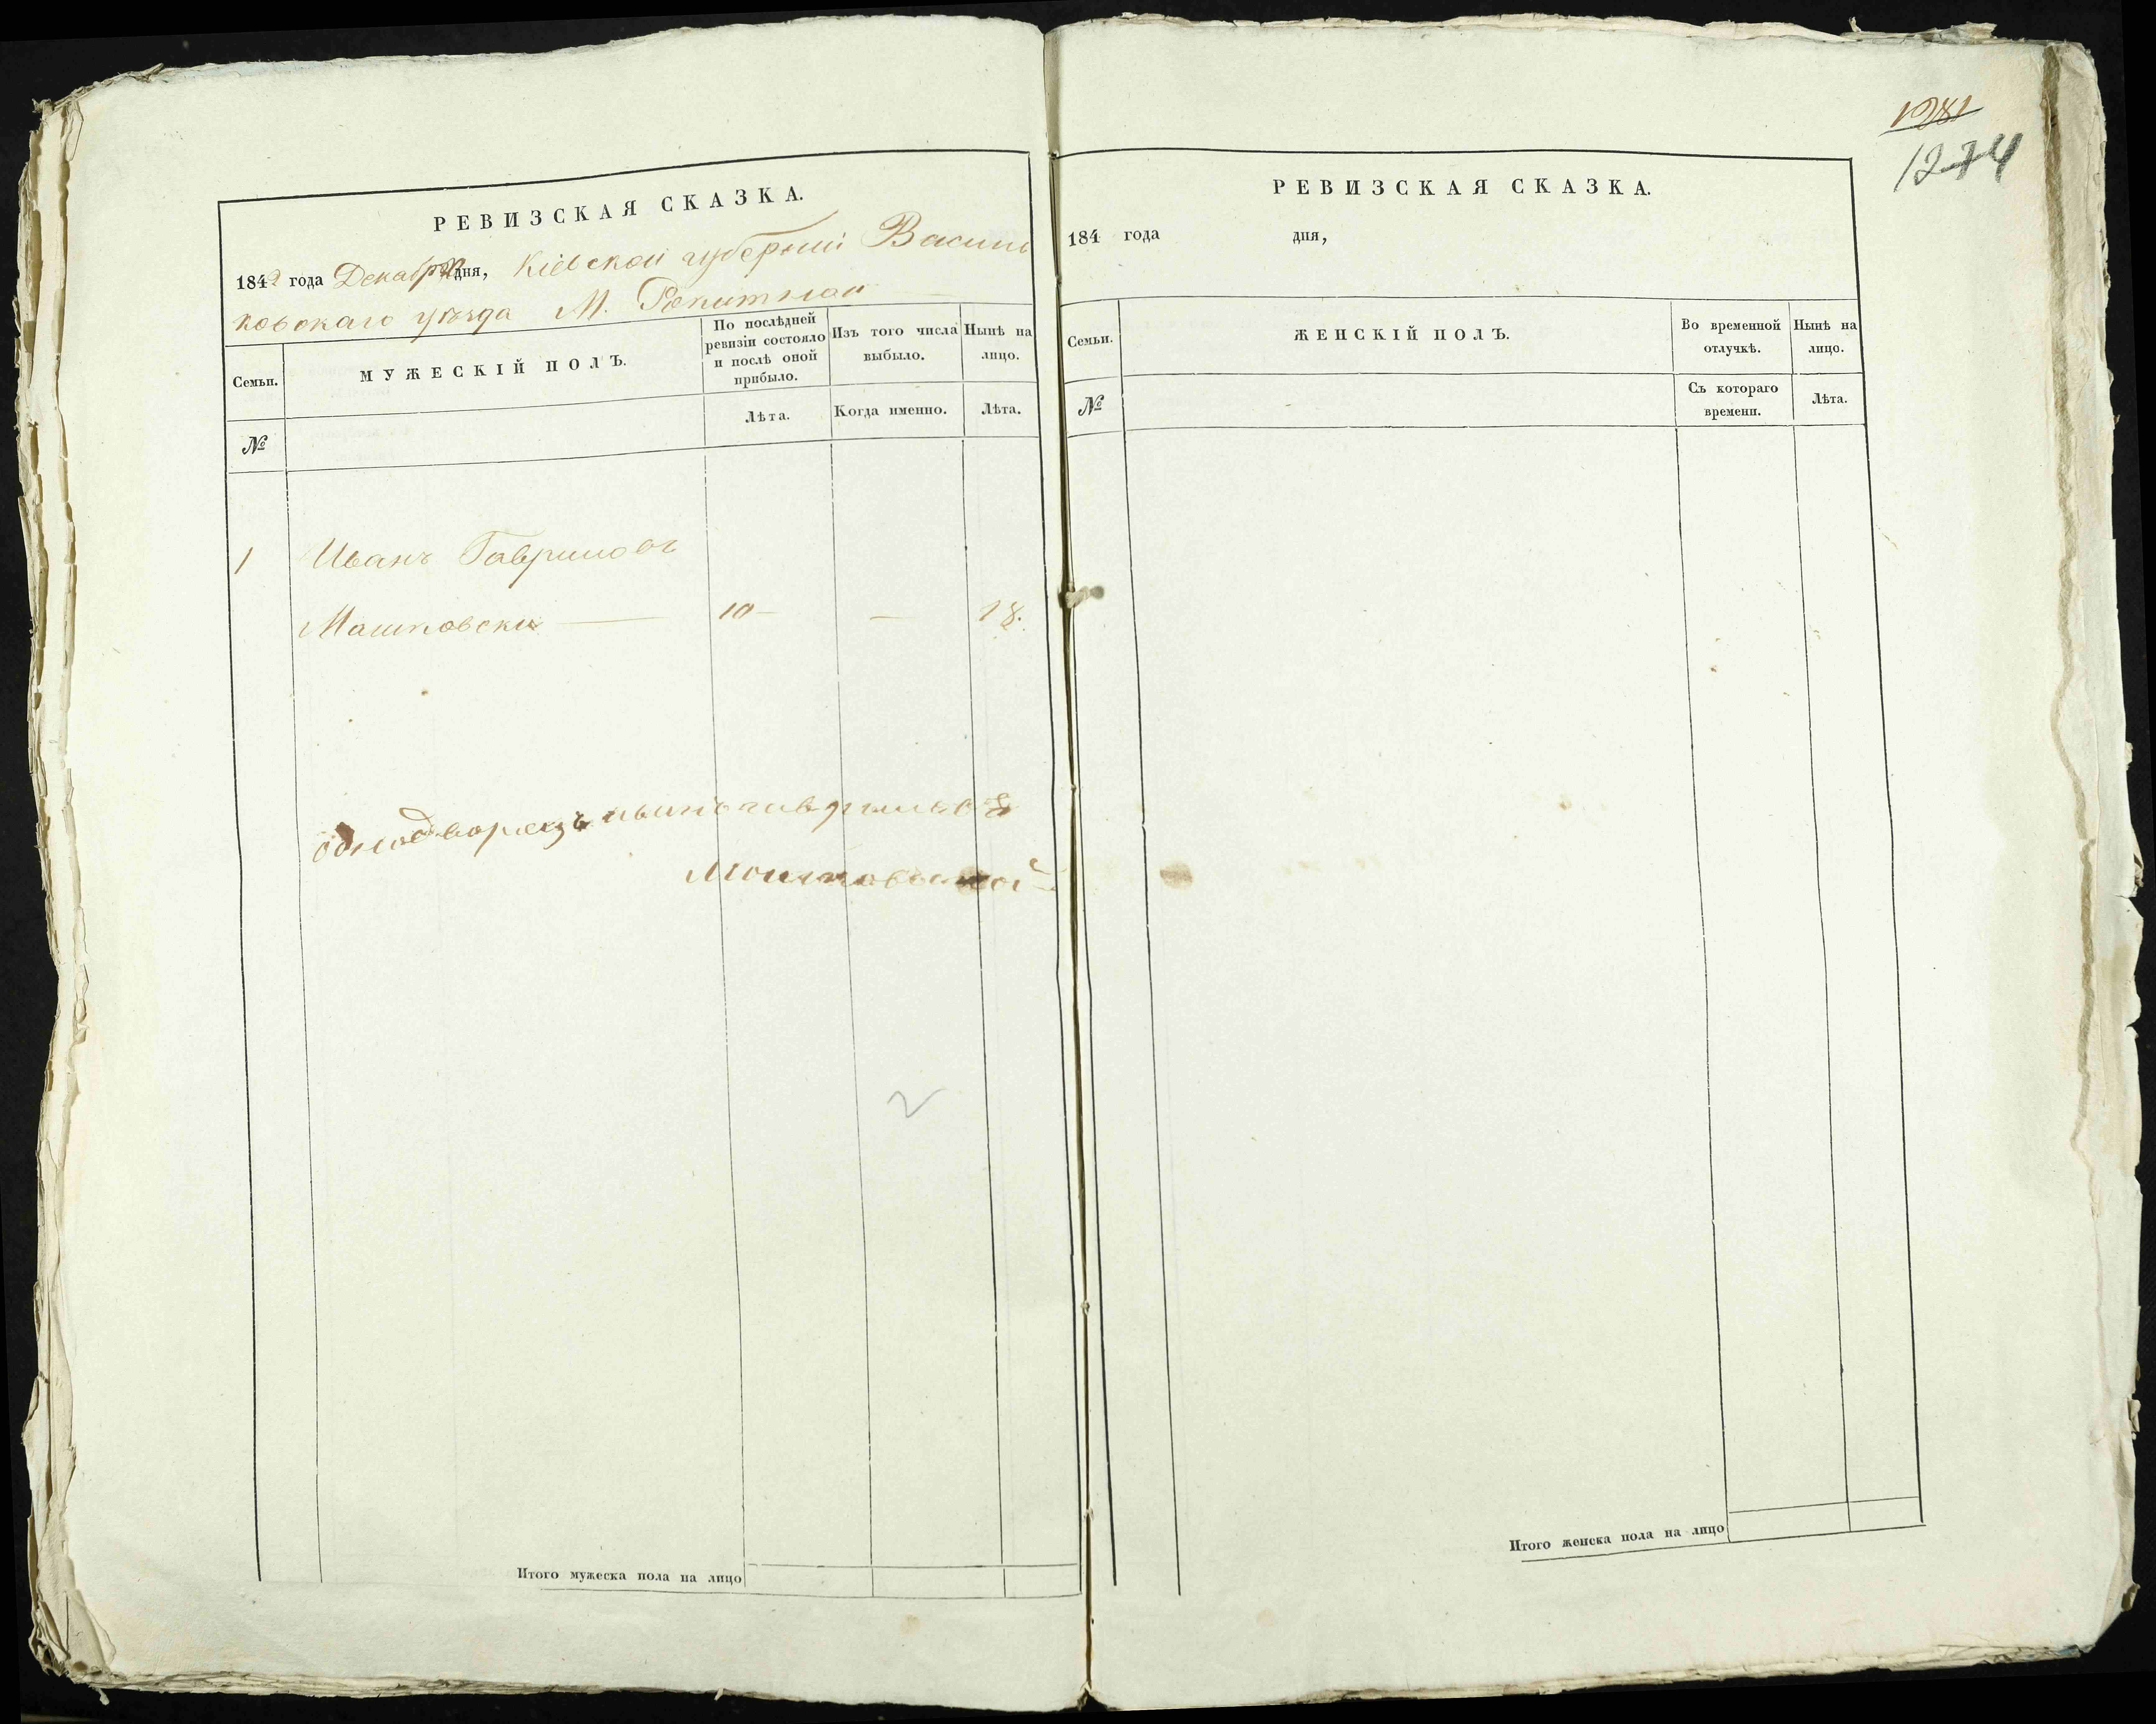 РЕВИЗСКАЯ СКАЗКА.
1842 года Декабря дня, Кіевской губерніи Василь
ковскаго уѣзда М. Рокитной
Семьи.
МУЖЕСКІЙ ПОЛЪ.
По послѣдней ревизіи состояло и послѣ оной прибыло.
Изъ того числа выбыло.
Нынѣ на лицо.
№
Лѣта.
Когда именно.
Лѣта.
1 Иванъ Гавриловъ
Машковски — 10 — — 18.
однодворецъ иванъ гавриловъ
Машковской
2
Итого мужеска пола на лицо
1281
1274
РЕВИЗСКАЯ СКАЗКА.
184 года дня,
Семьи.
ЖЕНСКІЙ ПОЛЪ.
Во временной отлучкѣ.
Нынѣ на лицо.
№
Съ котораго времени.
Лѣта.
Итого женска пола на лицо